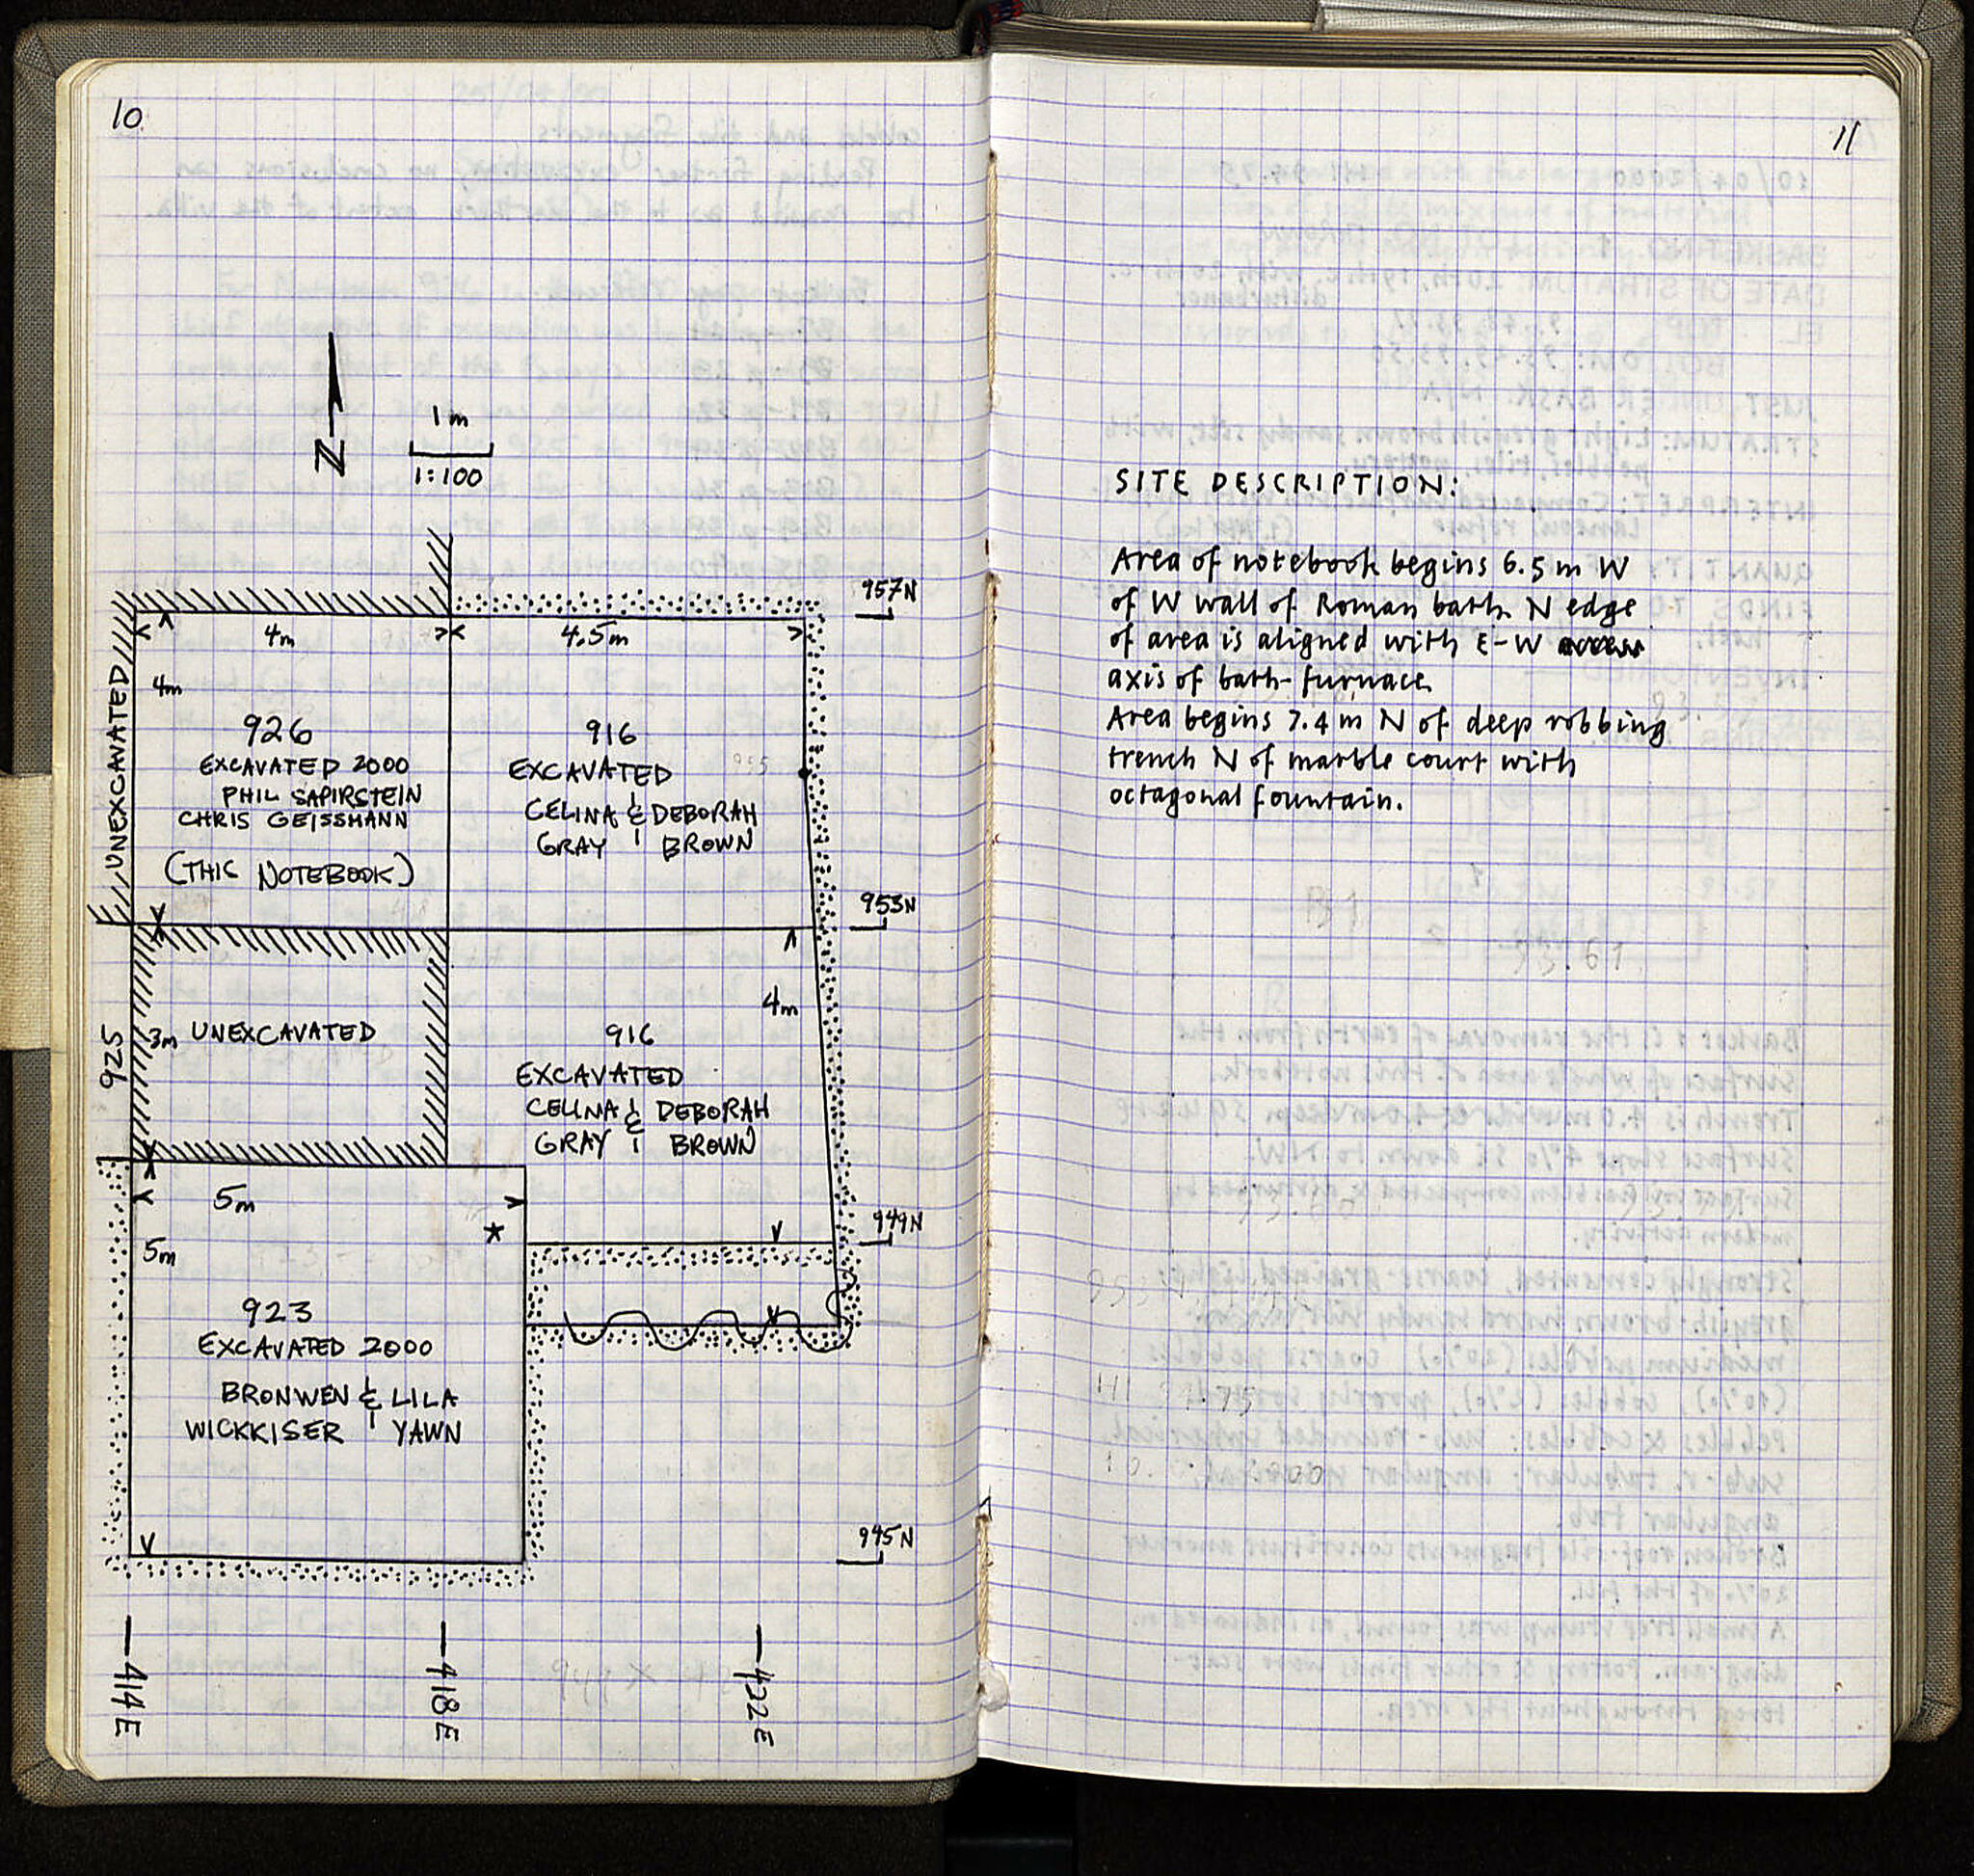 10
N
1 m
1:100
957N
4m
4.5m
UNEXCAVATED
4m
926
EXCAVATED 2000
PHIL SAPIRSTEIN
CHRIS GEISSMANN
(THIS NOTEBOOK)
916
EXCAVATED
CELINA & DEBORAH
GRAY BROWN
953N
925
3m
UNEXCAVATED
4m
916
EXCAVATED
CELINA & DEBORAH
GRAY & BROWN
949N
5m
*
5m
923
EXCAVATED 2000
BRONWEN & LILA
WICKKISER YAWN
945N
414E
418E
422E
11
SITE DESCRIPTION:
Area of notebook begins 6.5 m W
of W wall of Roman bath. N edge
of area is aligned with E-W
axis of bath-furnace.
Area begins 7.4 m N of deep robbing
trench N of marble court with
octagonal fountain.